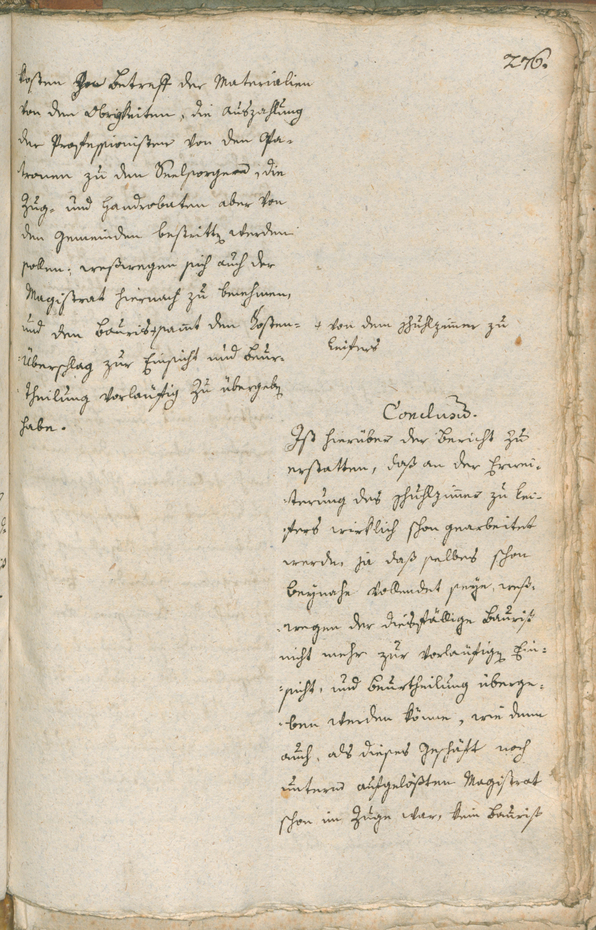 276.
kosten in Betreff der Materialien
von den Obrigkeiten, die Auszahlung
der Professionisten von den Pa-
tronen zu den Seelsorgern, die
Zug- und Handrobaten aber von
den Gemeinden bestritten werden
sollen; weßwegen sich auch der
Magistrat hiernach zu benehmen,
und den Bauriß samt den Kosten-
überschlag zur Einsicht und Beur-
theilung vorläufig zu übergeben
habe.
+ von dem Schuhlzimer zu
Leifers
Conclusum.
Ist hierüber der Bericht zu
erstatten, daß an der Erwei-
terung des Schuhlzimer zu Lei-
fers wirklich schon gearbeitet
werde, ja daß selbes schon
beynahe vollendet seye, weß-
wegen der diesfällige Bauriß
nicht mehr zur vorläufigen Ein-
sicht, und Beurtheilung überge-
ben werden könne, wie denn
auch, als dieses Geschäft noch
unterm aufgelößten Magistrat
schon im Zuge war, kein Bauriß